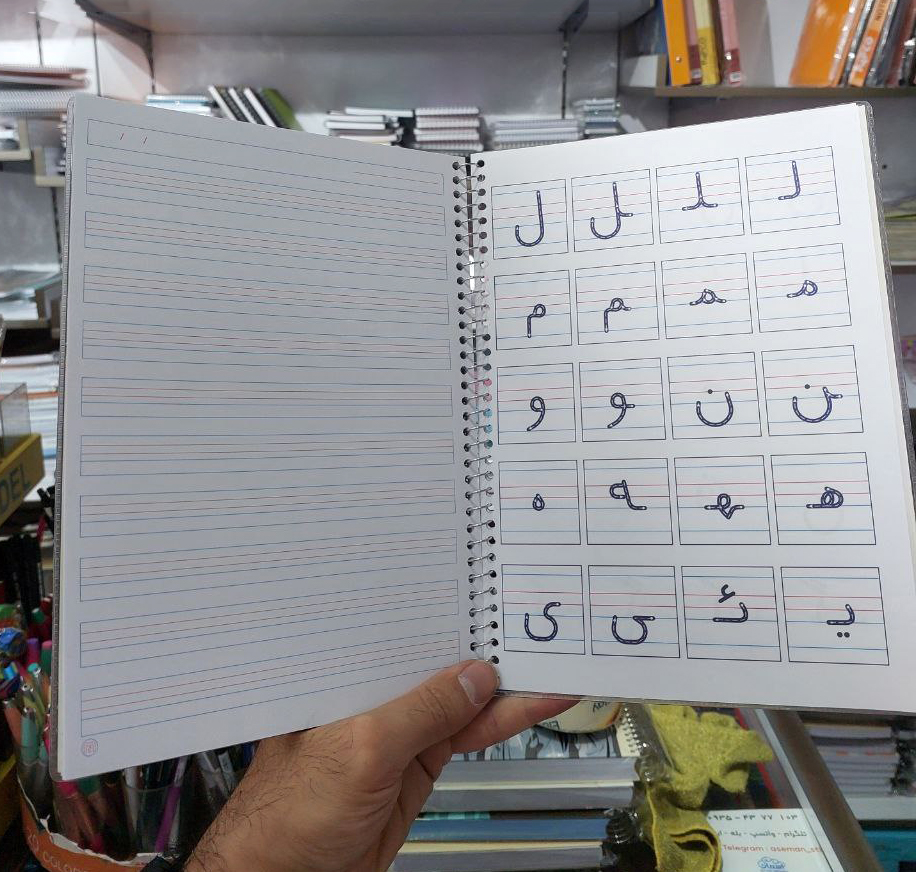 لـ ـلـ ـل ل
مـ ـمـ ـم م
ـن ن ـو و
هـ ـهـ ـه ه
یـ ئـ ـی ی
DEL
۰۹۳۵ - ۳۳ ۷۷ ۱۰۳
تلگرام - واتسپ - بله -
Telegram : aseman_st